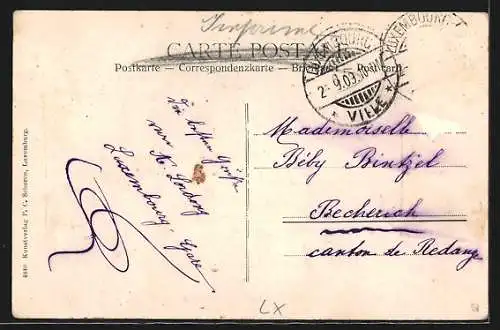 Imprimé
CARTE POSTALE
Postkarte — Correspondenzkarte — Postcard
LUXEMBOURG
2-9.09
* VILLE *
LUXEMBOURG
Mademoiselle
Béby Bintzel
Becherich
canton de Redange
Die besten Grüße
von
Luxembourg, Gare
Kunstverlag P. C. Schoren, Luxemburg.
LX